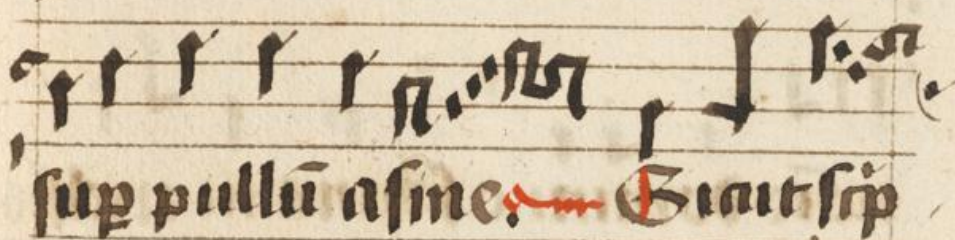 suꝑ pullū asine. Sicut scͥp